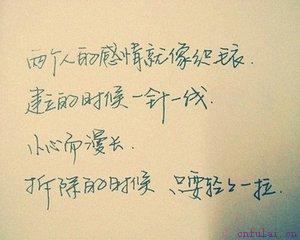 两个人的感情就像织毛衣.
建立的时候一针一线.
小心而漫长.
拆除的时候 只要轻轻一拉.
cnfulai.cn